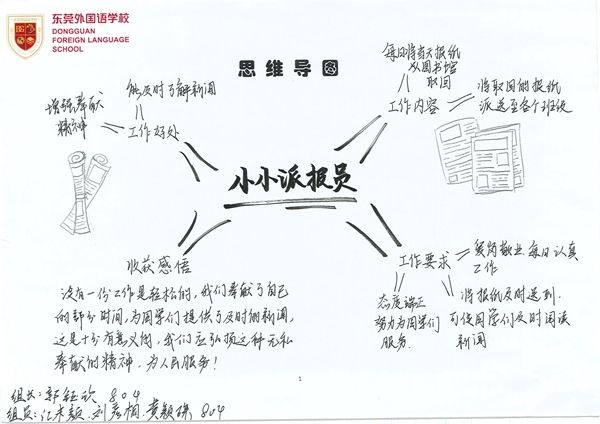 东莞外国语学校
DONGGUAN
FOREIGN LANGUAGE
SCHOOL
思维导图
每日将当天报纸
从图书馆
取回
工作内容
将取回的报纸
派送至各个班级
能及时了解新闻
增强奉献
精神
工作好处
小小派报员
收获感悟
没有一份工作是轻松的，我们奉献了自己
的部分时间，为同学们提供了及时的新闻，
这是十分有意义的，我们应弘扬这种无私
奉献的精神，为人民服务！
工作要求
爱岗敬业，每日认真
工作
态度端正
努力为同学们
服务。
将报纸及时送到，
可使同学们及时阅读
新闻
组长：郭钰欣 804
组员：刘彦桐、黄颖 804